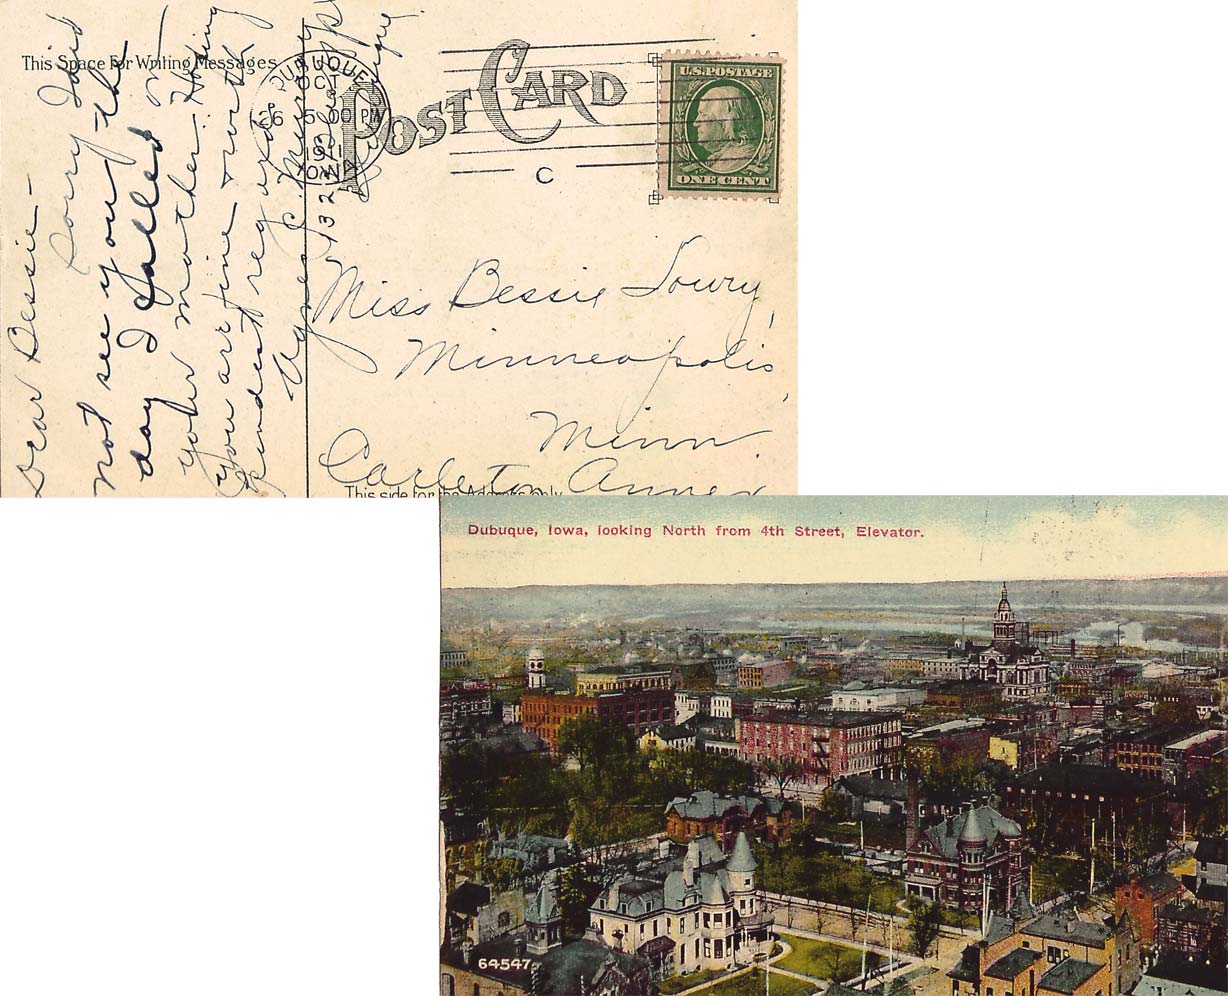 This Space For Writing Messages
POST CARD
DUBUQUE
OCT
26 5:00 PM
1911
IOWA
C
U.S. POSTAGE
ONE CENT
Dear Bessie -
Sorry I did
not see you the
day I called on
your mother. Hoping
you are fine - with
kindest regards
Agnes C. Murray
Miss Bessie Lowry,
Minneapolis,
Minn.
Carleton Annex
This side for the Address only
Dubuque, Iowa, looking North from 4th Street, Elevator.
64547